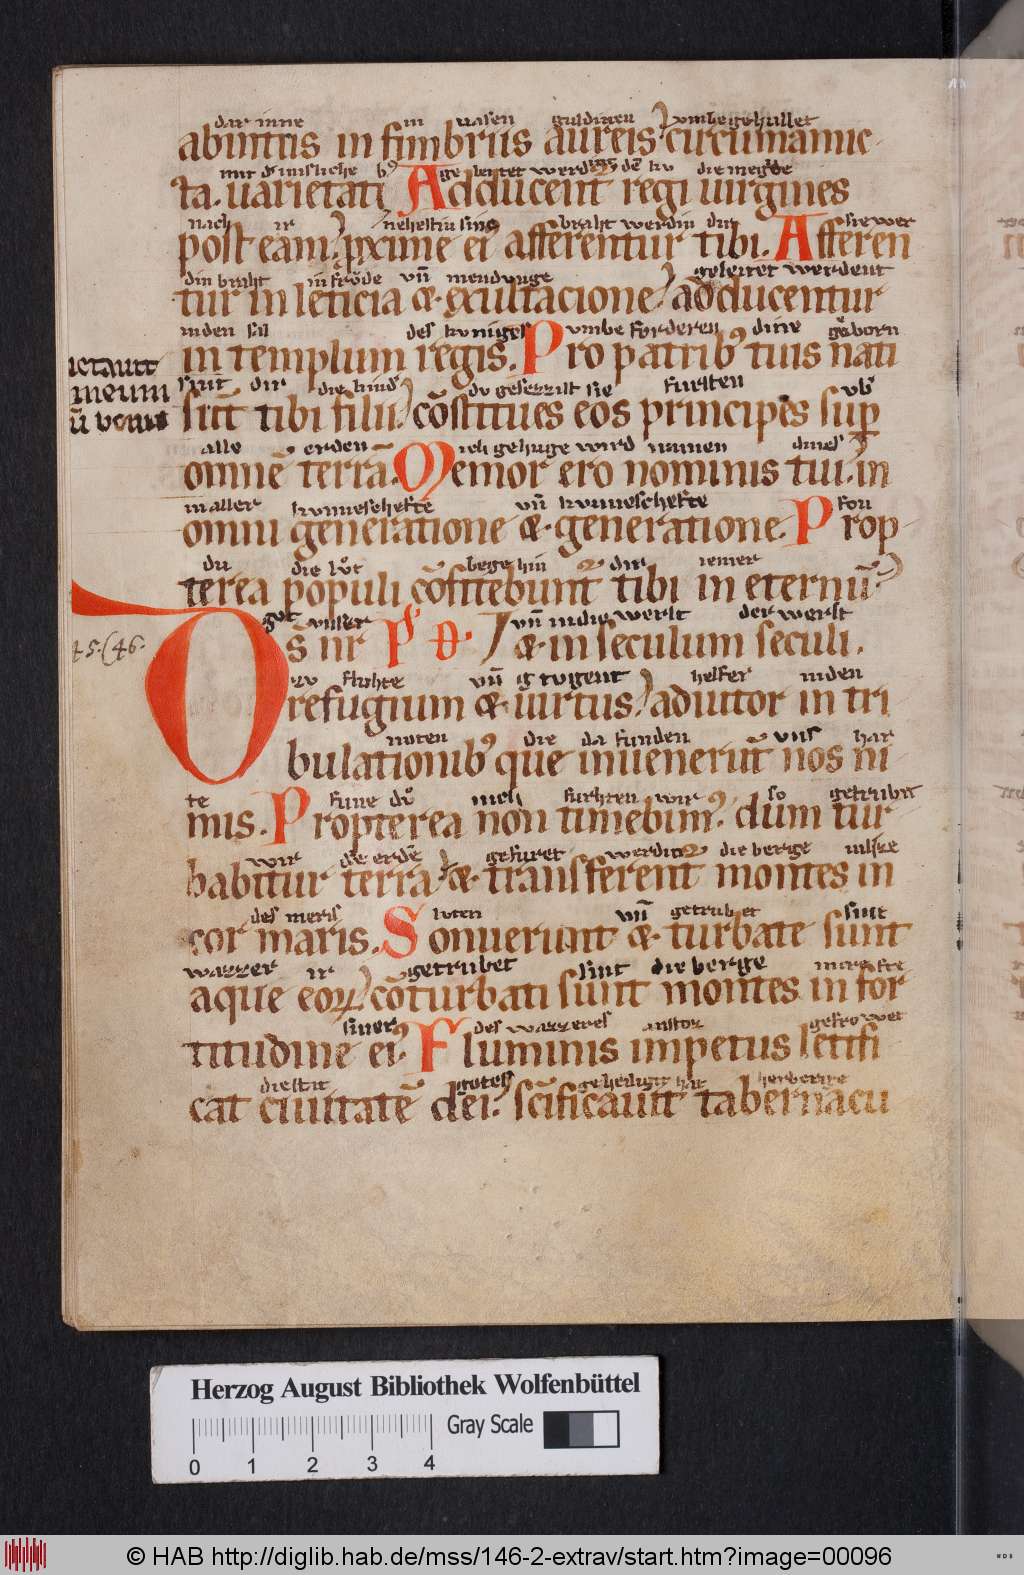 dar inne in uasen guldinen vmbegehullet
abintus in fimbriis aureis circumamic
mit ge leitet werd dē kv die megde
ta. uarietati Adducent regi uirgines
nach ir nehestin braht werdin dir sie wer
post eam. pxime ei afferentur tibi. Afferen
din braht in frŏde vn̄ mendunge geleitet werdent
tur in leticia & exultacione adducentur
inden sal des kuniges vmbe forderen dine geborn
in templum regis. Pro patrib' tuis nati
meum
sint dir die kind' dv gesezzist sie fursten vb'
sūt tibi filii cōstitues eos principes sup
alle erden Mich gehuge wird namen dines
omnē terrā. Memor ero nominis tui. in
in aller kunneschefte vn̄ kvnneschefte fon
omni generatione & generatione. Prop
du die begehin dir iemer
terea populi cōfitebunt tibi in eternū
got vnser vn̄ in die werlt der werlt
45.(46.
Ds nr & in seculum seculi.
zv fluhte vn̄ tvgent helfer inden
refugium & uirtus. adiutor in tri
noten die da funden vns har
bulationib' que inuenerūt nos ni
te fune mich furhten wir so getrubit
mis. Propterea non timebim'. dum tur
wir die erdē gefuret werdint die berge
babitur terra & transferent montes in
des meris luten vn̄ getrubet sint
cor maris. Sonuerunt & turbate sunt
wazzer ir getrubet sint die berge
aque eoꝝ cōturbati sunt montes in for
siner des wazzeres anstoz gefrowet
titudine ei'. Fluminis impetus letifi
die stat gotes geheiligit hat herberge
cat ciuitatē dei. scīficauit tabernacu
Herzog August Bibliothek Wolfenbüttel
Gray Scale
0 1 2 3 4
© HAB http://diglib.hab.de/mss/146-2-extrav/start.htm?image=00096